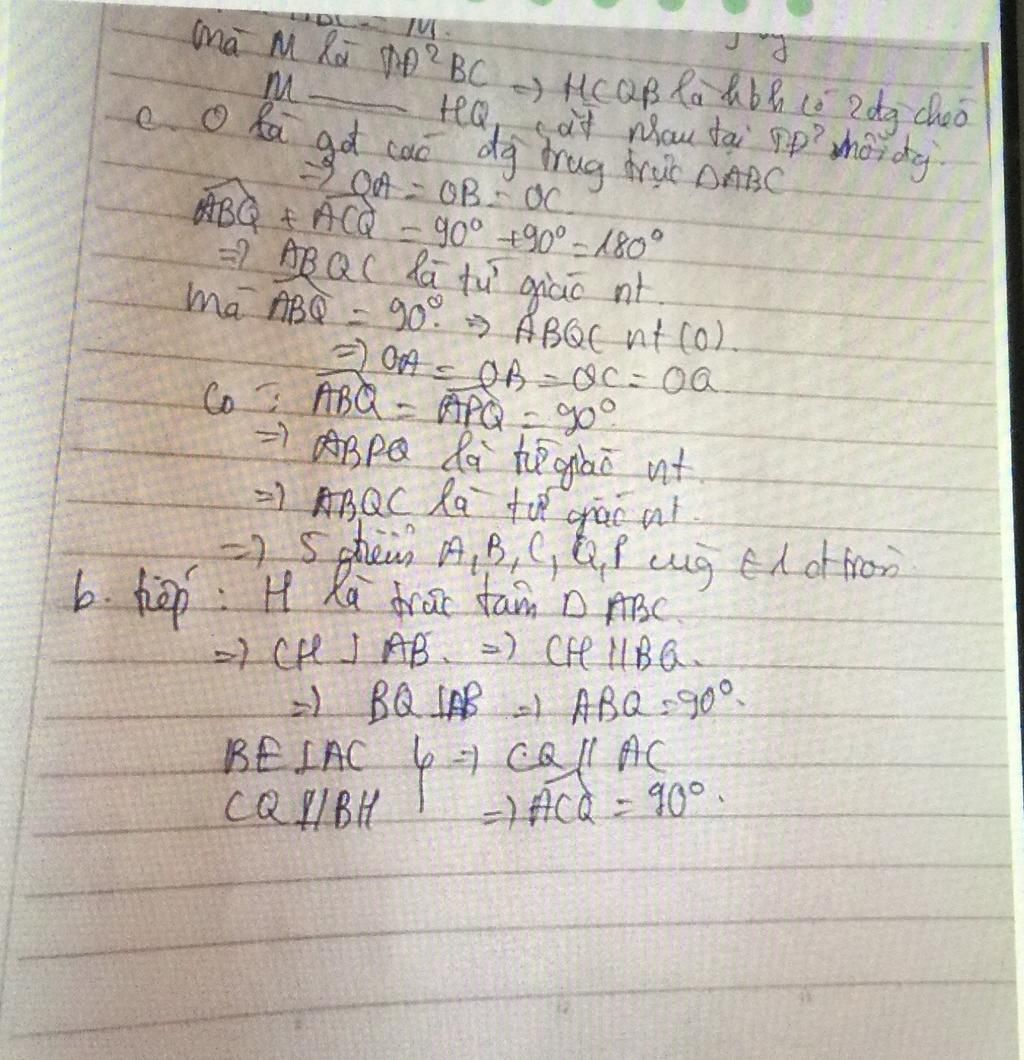 M.
mà M là TĐ² BC => HCQB là hbh có 2 đg chéo
M —— HQ, cắt nhau tại TĐ² mỗi đg.
c. O là gđ các đg trug trực ΔABC
=> OA = OB = OC
ABQ + ACQ = 90° + 90° = 180°
=> ABQC là tứ giác nt.
mà ABQ = 90° => ABQC nt (O).
=> OA = OB = OC = OQ
Có : ABQ = APQ = 90°
=> ABPQ là tứ giác nt.
=> ABQC là tứ giác nt.
=> 5 điểm A, B, C, Q, P cùg ∈ 1 đ tròn
b. tiếp : H là trực tâm Δ ABC.
=> CH ⊥ AB. => CH // BQ.
=> BQ ⊥ AB => ABQ = 90°.
BE ⊥ AC } => CQ // AC
CQ // BH => ACQ = 90°.